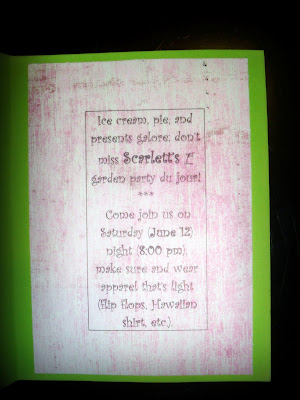 Ice cream, pie, and
presents galore; don't
miss Scarlett's 1st
garden party du jour!
***
Come join us on
Saturday (June 12)
night (8:00 pm);
make sure and wear
apparel that's light
(flip flops, Hawaiian
shirt, etc.).